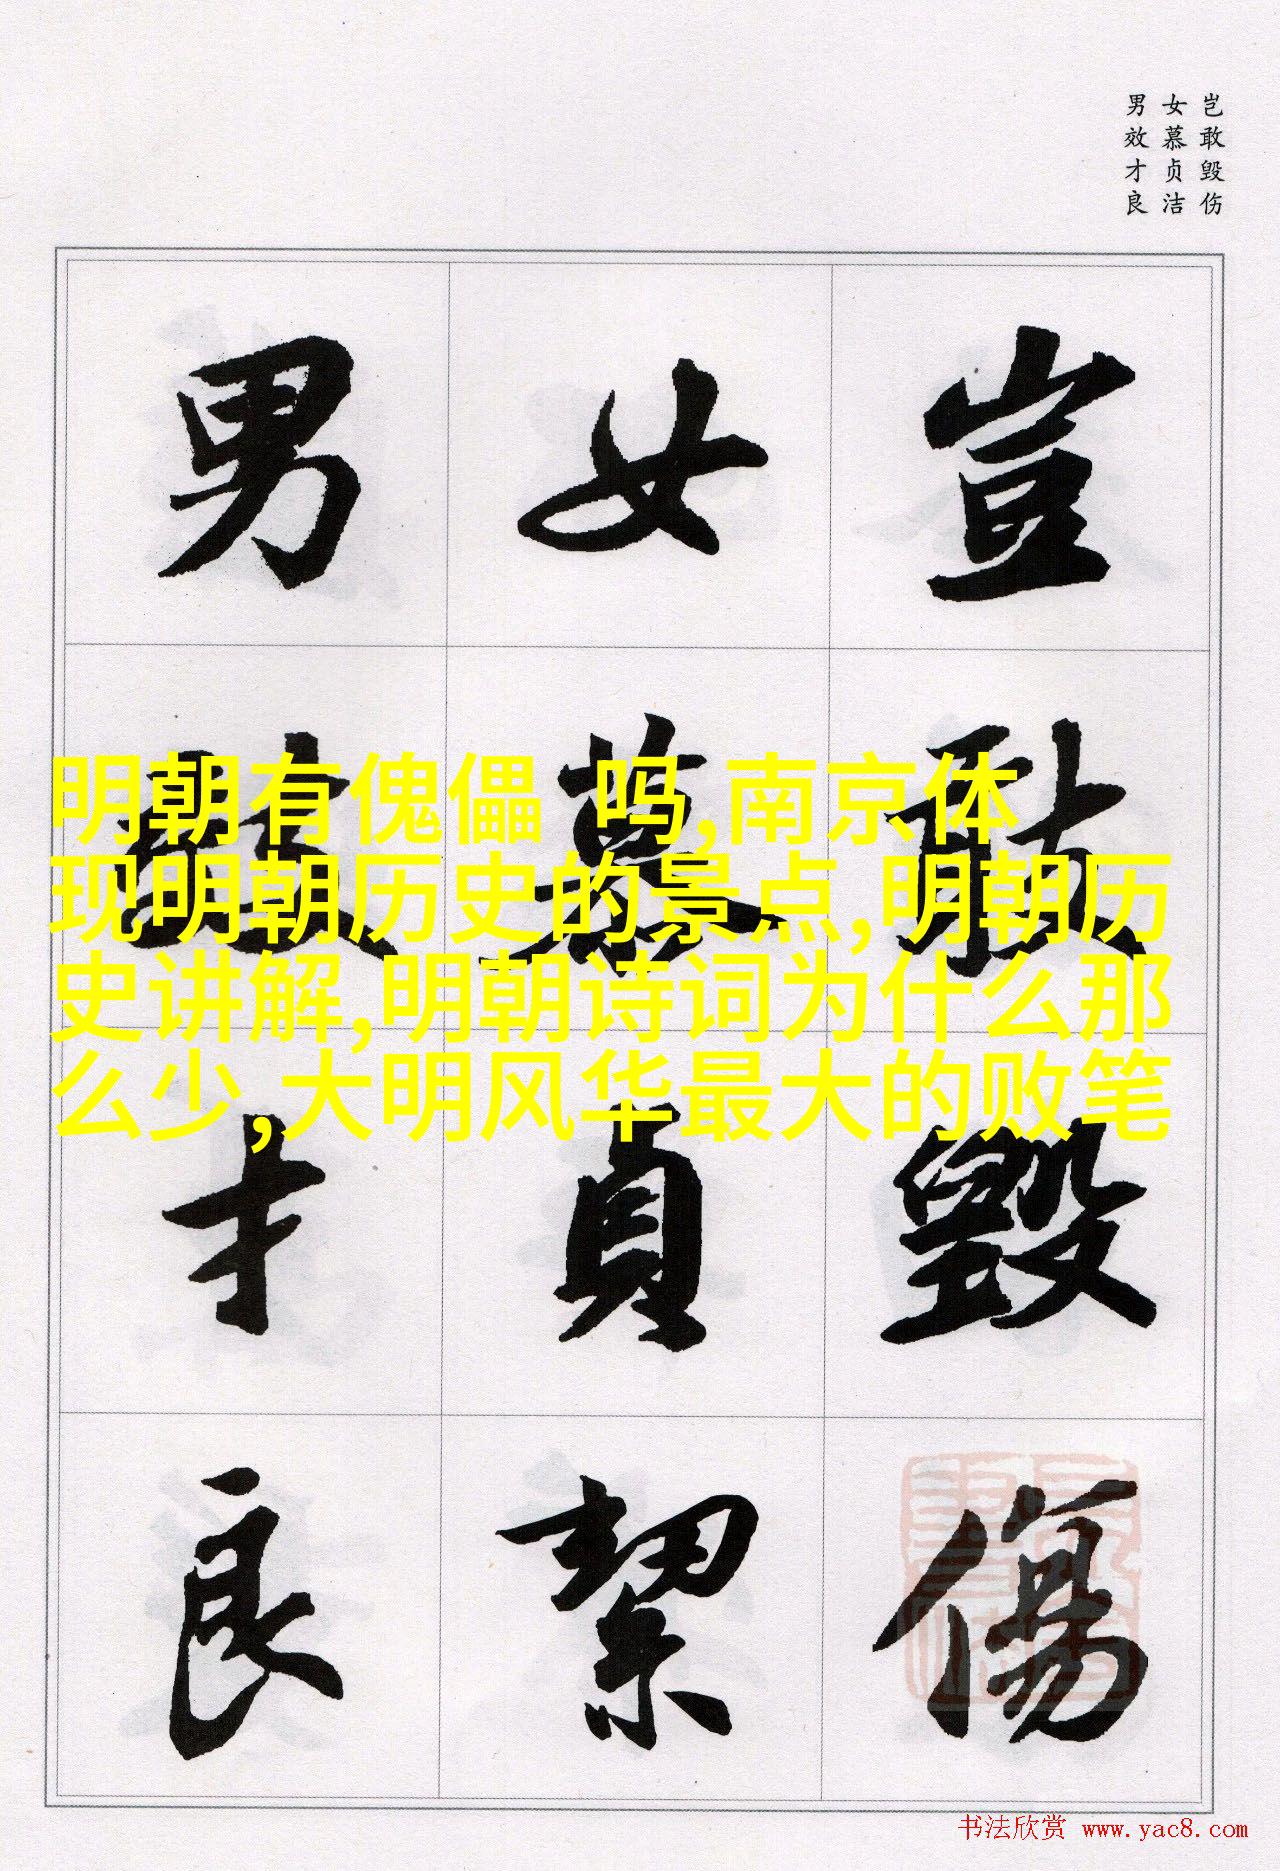 岂敢毁伤
女慕贞洁
男效才良
豈敢毀傷
女慕貞絜
男效才良
明朝有傀儡 吗,南京体
现明朝历史的景点,明朝历
史讲解,明朝诗词为什么那
么少,大明风华最大的败笔
书法欣赏 www.yac8.com